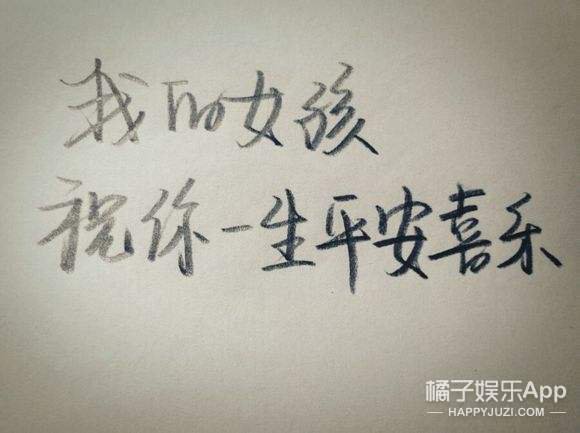 我的女孩
祝你一生平安喜乐
橘子娱乐App
HAPPYJUZI.COM